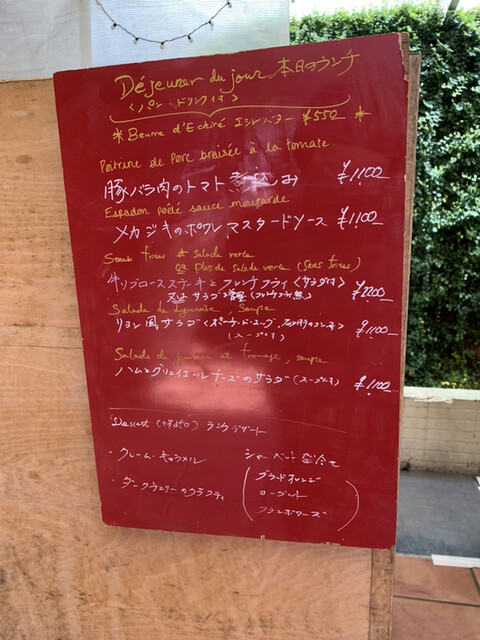 Déjeuner du jour 本日のランチ
<パン・ドリンク付>
* Beurre d'Echiré エシレバター ¥550 *
Poitrine de Porc braisée à la tomate
豚バラ肉のトマト煮込み ¥1,100
Espadon poêlé sauce moutarde
メカジキのポワレ マスタードソース ¥1,100
Steak frites et salade verte
ou Plus de salade verte (sans frites)
牛リブロースステーキとフレンチフライ <サラダ付>
又は サラダ (フレンチフライ無) ¥2200
Salade de Lyonnaise, soupe
リヨン風サラダ <ポーチド・エッグ, 砂肝のコンフィ> ¥1,100
(スープ付)
Salade de jambon et fromage, soupe
ハムとグリュイエールチーズのサラダ (スープ付) ¥1,100
Dessert (+¥350) ランチデザート
・クレーム・キャラメル
・ダークチェリーのクラフティ
シャーベット盛合せ
ブラッドオレンジ
ヨーグルト
フランボワーズ